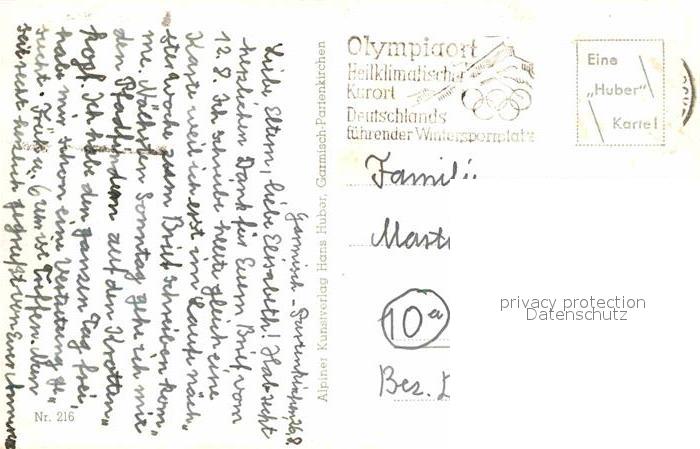 Garmisch-Partenkirchen, 26.8.
Liebe Eltern, liebe Elisabeth! Habt recht
herzlichen Dank für Euern Brief vom
12. 8. Ich schreibe heute gleich eine
Karte weil ich erst im Laufe näch-
ster Woche zum Brief schreiben kom-
me. Nächsten Sonntag gehe ich mit
den Pfadfindern auf den Krotten-
kopf. Ich habe den ganzen Tag frei,
habe mir schon eine Vertretung ge-
sucht. Früh a. 6 Uhr ist Treffen. Nun
seid recht herzlich gegrüßt von Eurer
Nr. 216
Alpiner Kunstverlag Hans Huber, Garmisch-Partenkirchen
Olympiaort
Heilklimatischer
Kurort
Deutschlands
führender Wintersportplatz
Eine
„Huber"
Karte!
Famili
Mart
10a
Bez.
privacy protection
Datenschutz